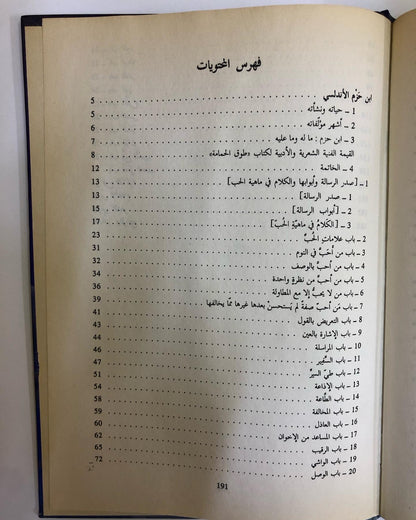 فهرس المحتويات
ابن حَزْم الأندلسي . . . 5
1 ـ حياته ونشأته . . . 5
2 ـ أشهر مؤلفاته . . . 6
3 ـ ابن حزم : ما له وما عليه . . . 7
القيمة الفنية الشعرية والأدبية لكتاب «طوق الحمامة» . . . 8
4 ـ الخاتمة . . . 12
1 ـ [صدر الرسالة وأبوابها والكلام في ماهية الحب] . . . 13
1 ـ صدر الرسالة] . . . 13
2 ـ [أبواب الرسالة] . . . 15
3 ـ [الكلامُ في ماهيّةِ الحُبّ] . . . 17
2 ـ باب علاماتِ الحُبّ . . . 23
3 ـ باب من أحَبّ في النوم . . . 31
4 ـ باب من أحبّ بالوصف . . . 32
5 ـ باب من أحبّ من نظرةٍ واحدة . . . 34
6 ـ باب من لا يحبّ إلا مع المطاولة . . . 36
7 ـ باب مَن أحبّ صفةً لم يَستحسنْ بعدها غيرها ممّا يخالفها . . . 39
8 ـ باب التعريض بالقول . . . 41
9 ـ باب الإشارة بالعين . . . 43
10 ـ باب المراسلة . . . 44
11 ـ باب السَّفير . . . 46
12 ـ باب طيّ السرّ . . . 47
13 ـ باب الإذاعة . . . 51
14 ـ باب الطَّاعة . . . 54
15 ـ باب المخالفة . . . 58
16 ـ باب العاذل . . . 59
17 ـ باب المساعد من الإخوان . . . 60
18 ـ باب الرقيب . . . 62
19 ـ باب الواشي . . . 65
20 ـ باب الوصل . . . 72
191